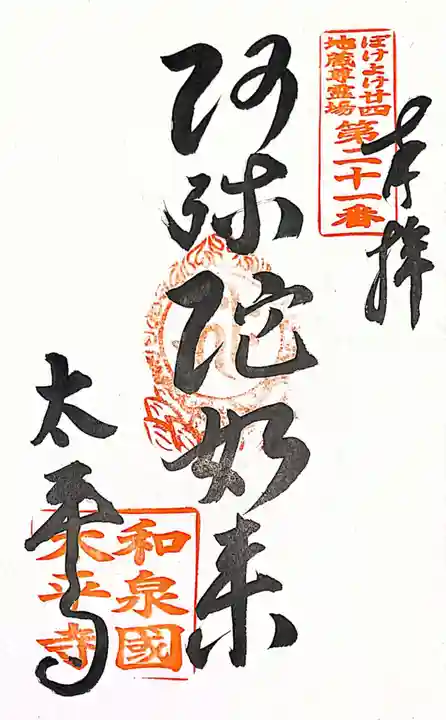 奉拝
ぼけよけ廿四
地蔵尊霊場
第二十一番
阿弥陀如来
太平寺
和泉國
太平寺